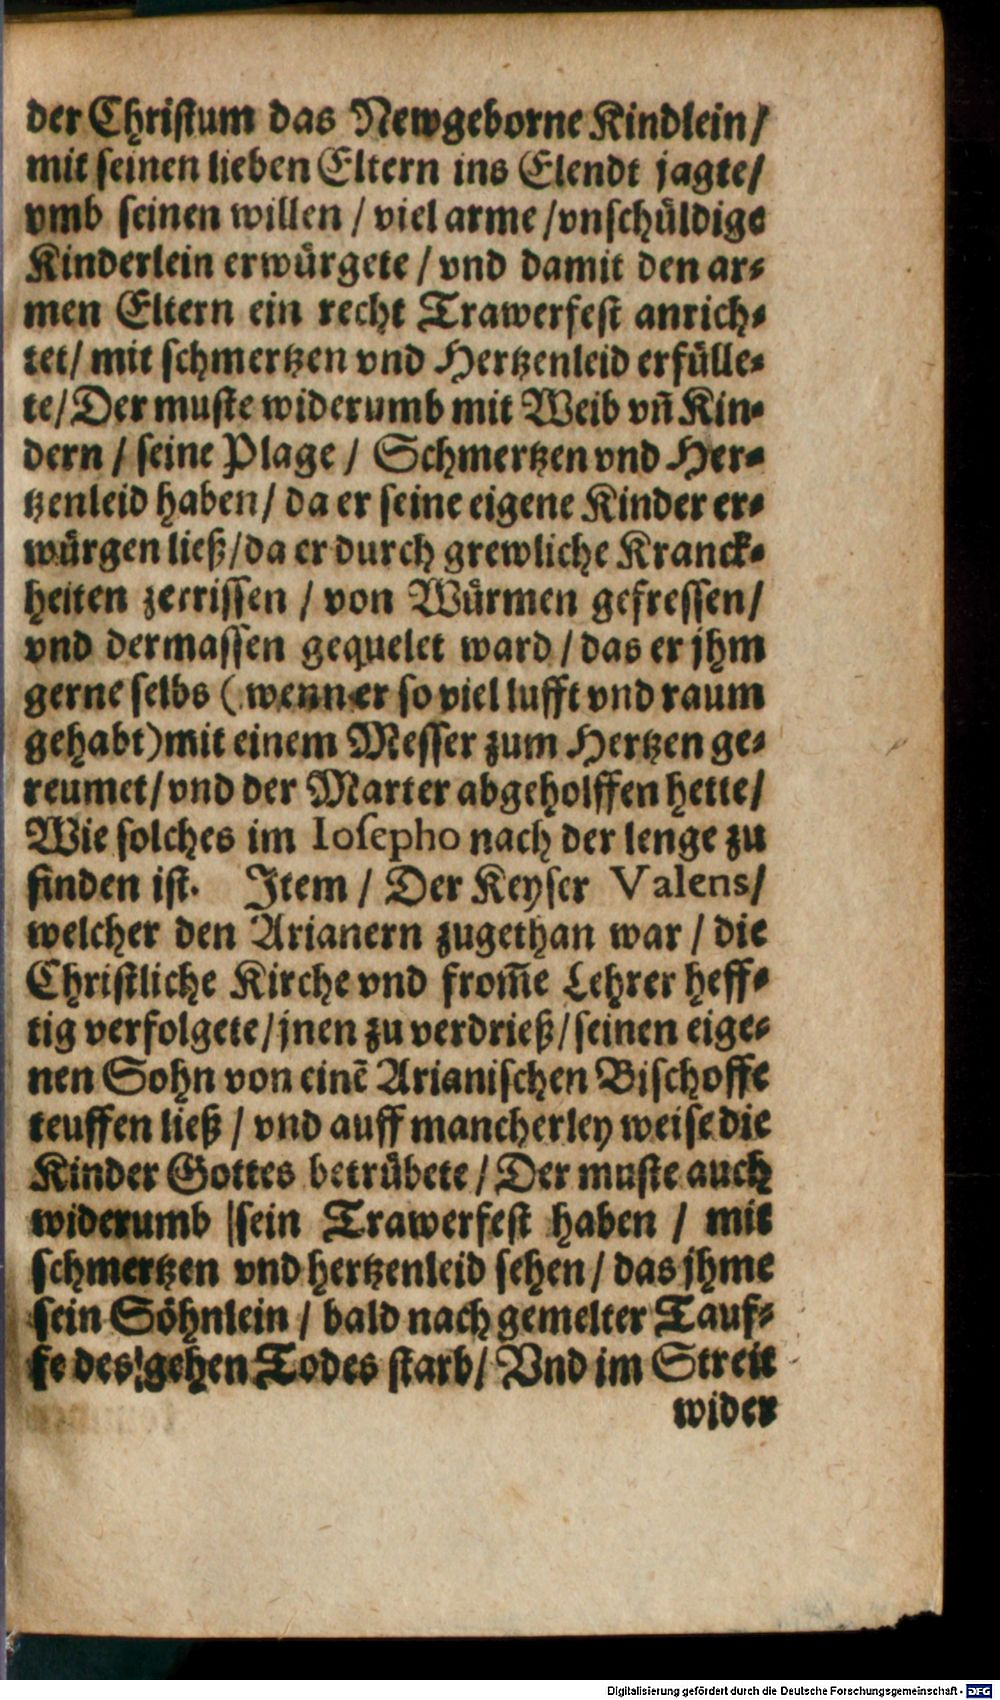 der Christum das Newgeborne Kindlein/
mit seinen lieben Eltern ins Elendt jagte/
vmb seinen willen / viel arme /vnschüldige
Kinderlein erwürgete / vnd damit den ar⸗
men Eltern ein recht Trawerfest anrich⸗
tet/ mit schmertzen vnd Hertzenleid erfülle⸗
te/Der muste widerumb mit Weib vñ Kin⸗
dern / seine Plage / Schmertzen vnd Her⸗
tzenleid haben/ da er seine eigene Kinder er⸗
würgen ließ/da er durch grewliche Kranck⸗
heiten zerrissen / von Würmen gefressen/
vnd dermassen gequelet ward / das er jhm
gerne selbs ( wenn er so viel lufft vnd raum
gehabt)mit einem Messer zum Hertzen ge⸗
reumet/vnd der Marter abgeholffen hette/
Wie solches im Iosepho nach der lenge zu
finden ist. Item / Der Keyser Valens/
welcher den Arianern zugethan war / die
Christliche Kirche vnd from̃e Lehrer heff⸗
tig verfolgete/jnen zu verdrieß/seinen eige⸗
nen Sohn von einẽ Arianischen Bischoffe
teuffen ließ / vnd auff mancherley weise die
Kinder Gottes betrübete / Der muste auch
widerumb sein Trawerfest haben / mit
schmertzen vnd hertzenleid sehen / das jhme
sein Söhnlein / bald nach gemelter Tauf⸗
fe des gehen Todes starb/ Vnd im Streit
wider
Digitalisierung gefördert durch die Deutsche Forschungsgemeinschaft - DFG